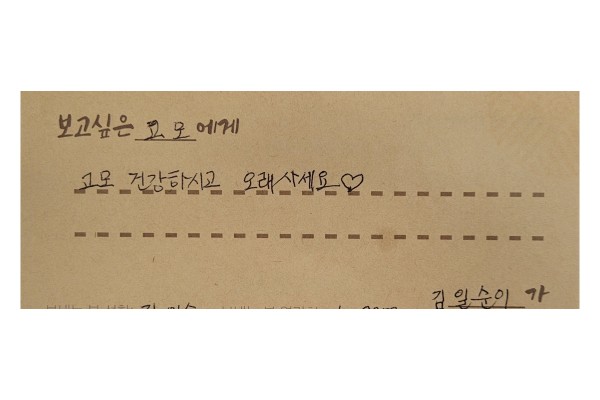 보고싶은 고모에게
고모 건강하시고 오래사세요♡
김일순이 가